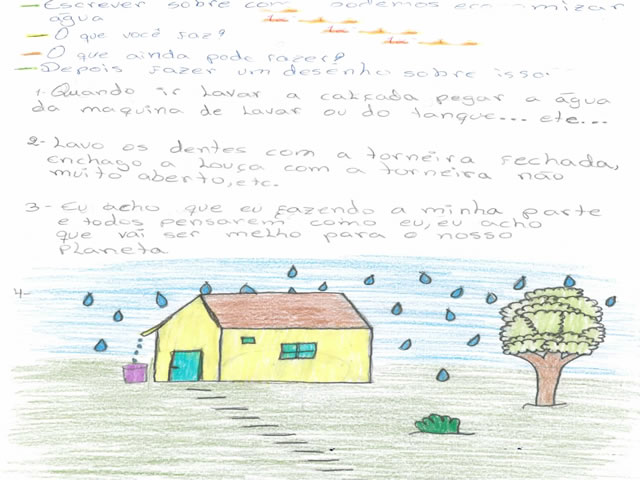 - Escrever sobre como podemos economizar
água
- O que você faz?
- O que ainda pode fazer?
- Depois fazer um desenho sobre isso.
1- Quando ir lavar a calçada pegar a água
da maquina de lavar ou do tanque... etc...
2- Lavo os dentes com a torneira fechada,
enchago a louça com a torneira não
muito aberto, etc.
3- Eu acho que eu fazendo a minha parte
e todos pensarem como eu, eu acho
que vai ser melho para o nosso
planeta
4-